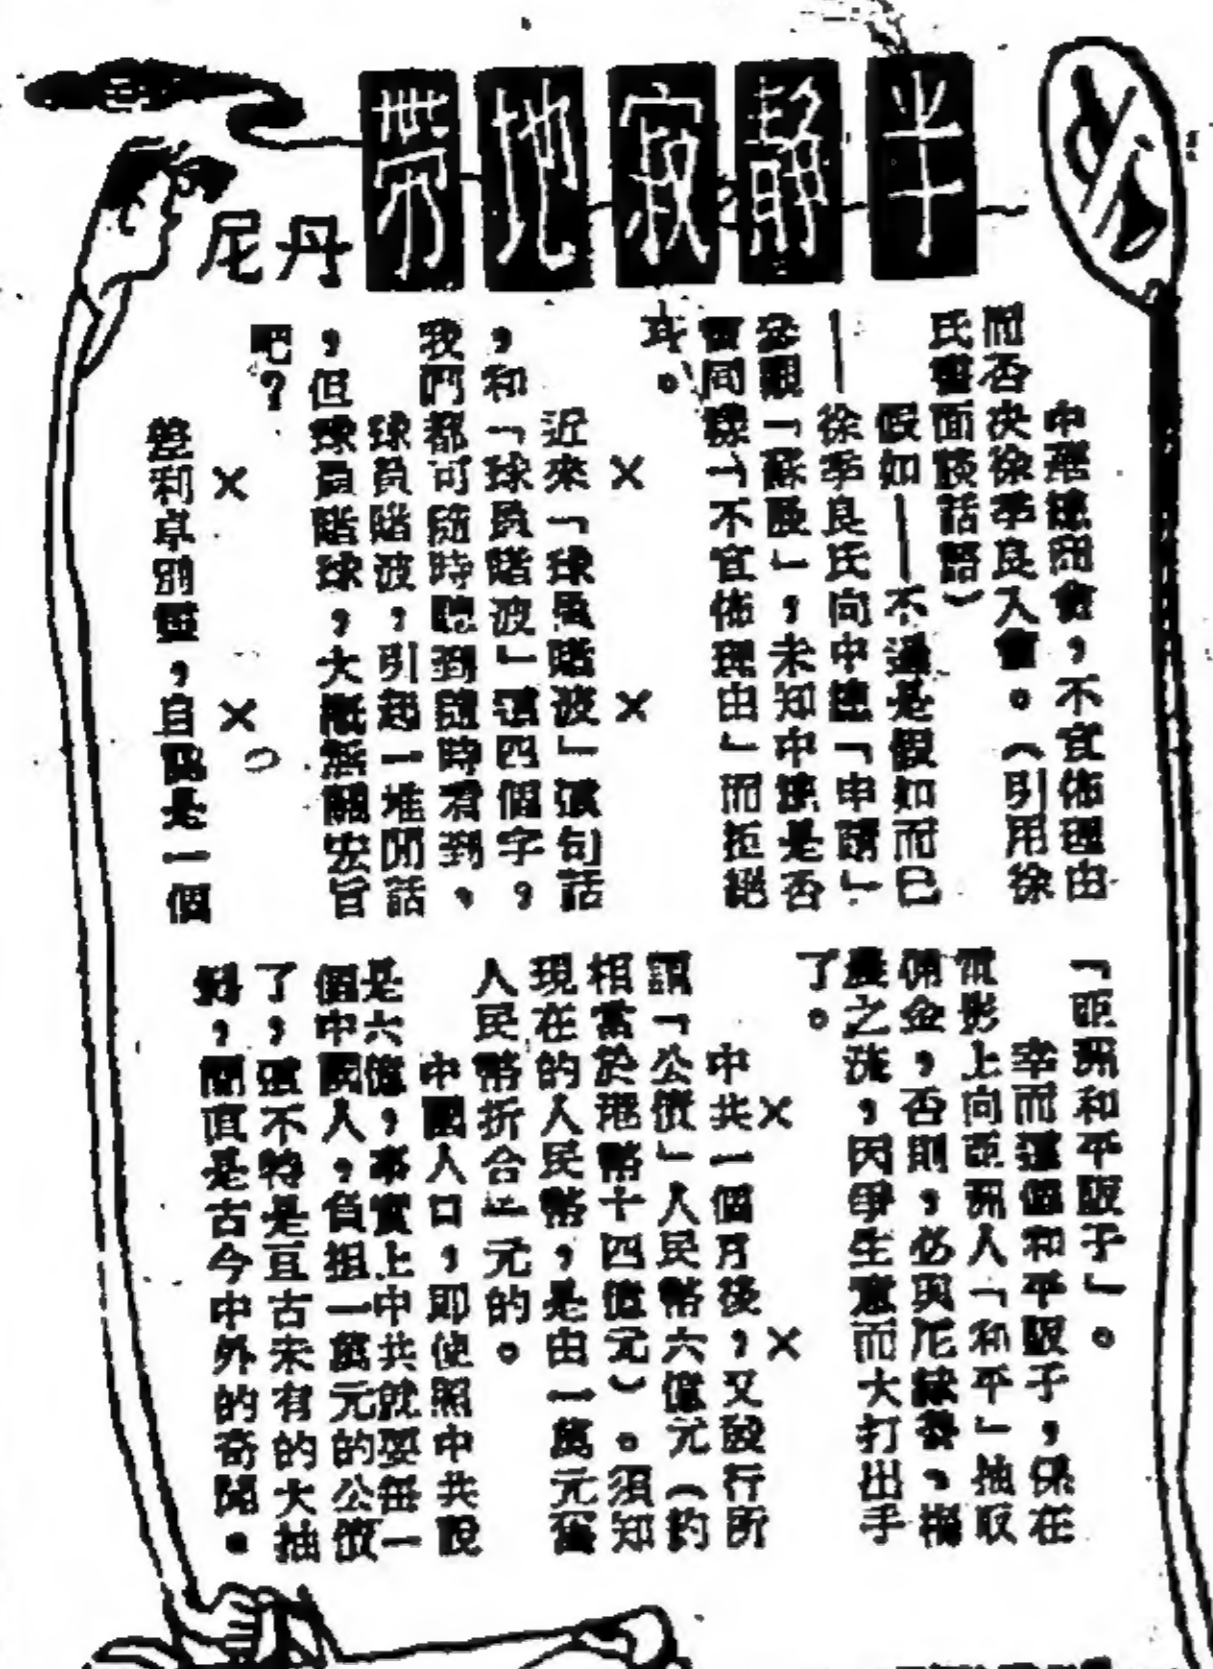 半靜寂地帶
丹尼
中華總商會,不宣佈理由
而否决徐季良入會。(引用徐
氏書面談話語)
假如——不過是假如而已
——徐季良氏向中總「申請」
參觀「蘇展」,未知中總是否
會同樣「不宣佈理由」而拒絕
耳。
× ×
近來「球員賭波」這句話
,和「球員賭波」這四個字,
我們都可隨時聽到隨時看到,
球員賭波,引起一堆閒話
,但球員賭球,大概無關宏旨
吧?
× ×
差利卓別靈,自認是一個
「亞洲和平販子」。
幸而這個和平販子,係在
電影上向亞洲人「和平」抽取
佣金,否則,必與尼赫魯,
之流,因爭生意而大打出手
了。
× ×
中共一個月後,又發行所
謂「公債」人民幣六億元(約
相當於港幣十四億元)。須知
現在的人民幣,是由一萬元舊
人民幣折合一元的。
中國人口,即使照中共說
是六億,事實上中共就要每一
個中國人,負担一萬元的公債
了,這不特是亘古未有的大抽
,簡直是古今中外的奇聞。